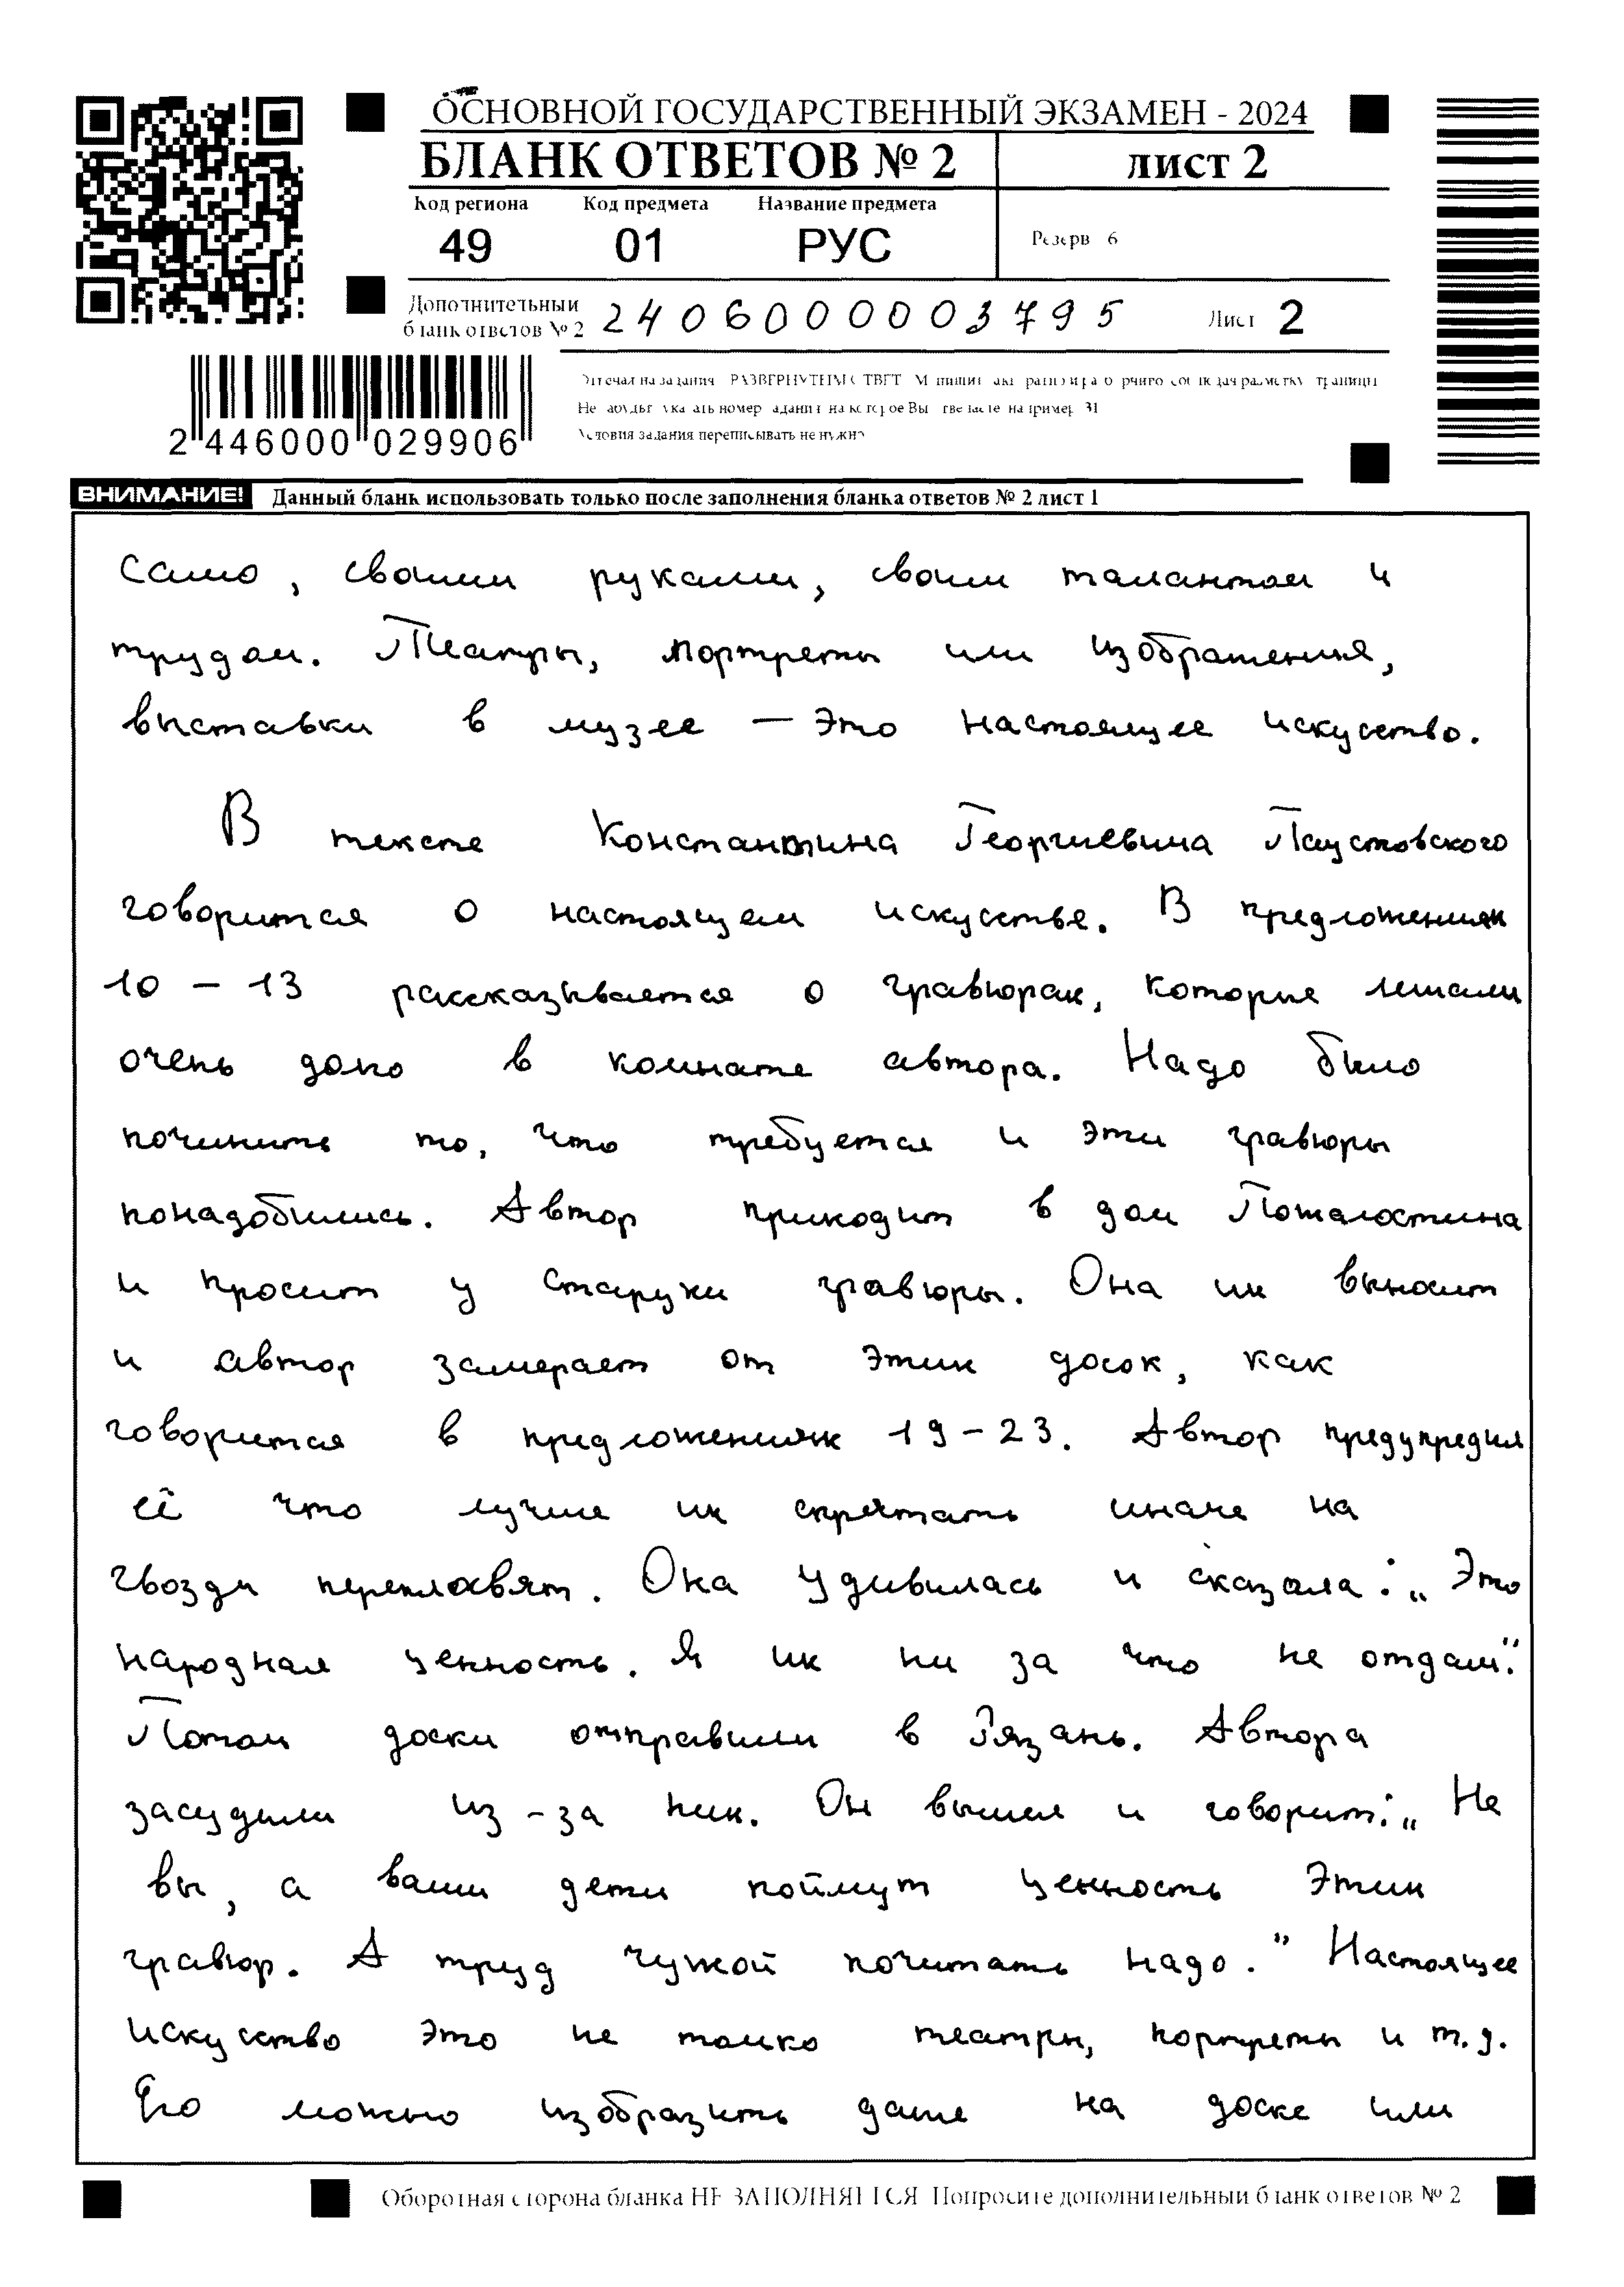 ОСНОВНОЙ ГОСУДАРСТВЕННЫЙ ЭКЗАМЕН - 2024
БЛАНК ОТВЕТОВ № 2
лист 2
Код региона Код предмета Название предмета
49 01 РУС
Резерв 6
Дополнительный
бланк ответов № 2
2406000003795
Лист 2
2 446000 029906
Условия задания переписывать не нужно
ВНИМАНИЕ! Данный бланк использовать только после заполнения бланка ответов № 2 лист 1
само, своими руками, своим талантом и
трудом. Театры, портреты или изображения,
выставки в музее – это настоящее искусство.
В тексте Константина Георгиевича Паустовского
говорится о настоящем искусстве. В предложениях
10 – 13 рассказывается о гравюрах, которые лежали
очень долго в комнате автора. Надо было
починить то, что требуется и эти гравюры
понадобились. Автор приходит в дом Пожалостина
и просит у старухи гравюры. Она их выносит
и автор замерает от этих досок, как
говорится в предложениях 19-23. Автор предупредил
её что лучше их спрятать иначе на
гвозди переплавят. Она удивилась и сказала: „Это
народная ценность. Я их ни за что не отдам."
Потом доски отправили в Рязань. Автора
засудили из-за них. Он вышел и говорит: „Не
вы, а ваши дети поймут ценность этих
гравюр. А труд чужой почитать надо." Настоящее
искусство это не только театры, портреты и т.д.
Его можно изобразить даже на доске или
Оборотная сторона бланка НЕ ЗАПОЛНЯЕТСЯ Попросите дополнительный бланк ответов № 2